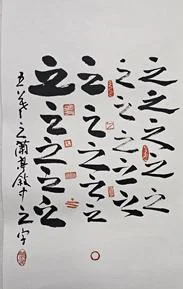 之之之之之
之之之之之之
之之之之之
之之之之之
王羲之蘭亭敘中之字